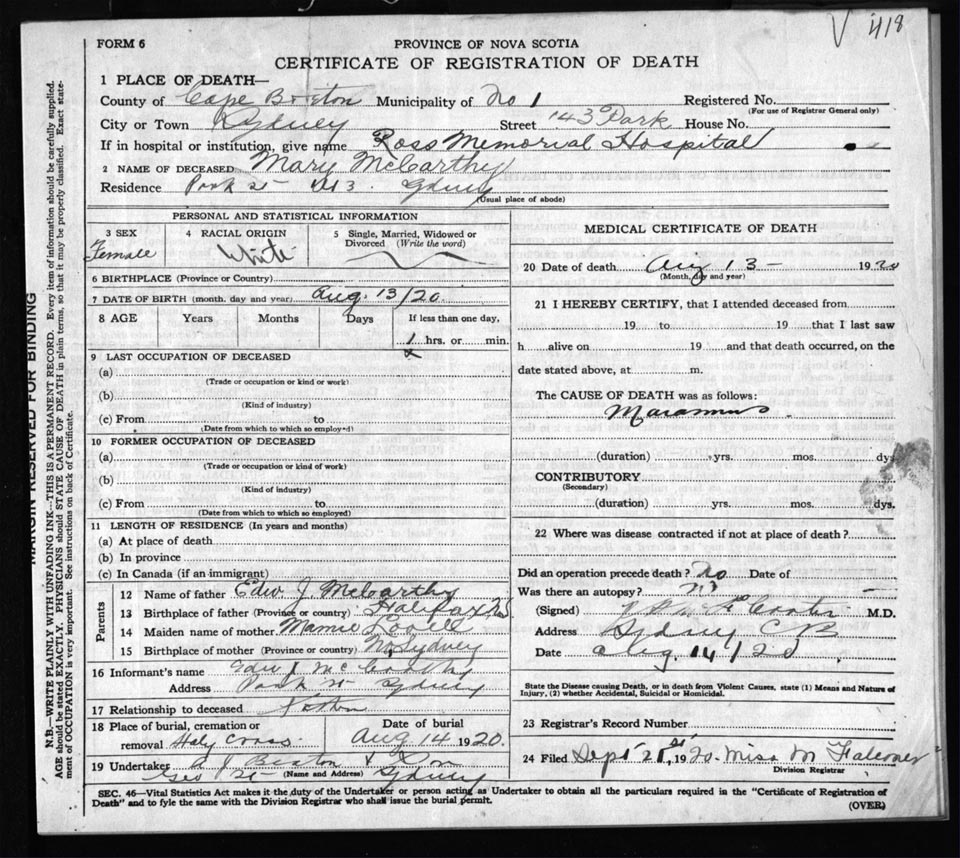 V 418
FORM 6
PROVINCE OF NOVA SCOTIA
CERTIFICATE OF REGISTRATION OF DEATH
1 PLACE OF DEATH—
County of Cape Breton Municipality of No 1 Registered No.
(For use of Registrar General only)
City or Town Sydney Street 143 Park House No.
If in hospital or institution, give name Ross Memorial Hospital
2 NAME OF DECEASED Mary McCarthy
Residence Park St Sydney
(Usual place of abode)
PERSONAL AND STATISTICAL INFORMATION
3 SEX 4 RACIAL ORIGIN 5 Single, Married, Widowed or Divorced (Write the word)
Female White
6 BIRTHPLACE (Province or Country)
7 DATE OF BIRTH (month, day and year) Aug. 13/20
8 AGE Years Months Days If less than one day,
1 hrs. or min.
9 LAST OCCUPATION OF DECEASED
(a)
(Trade or occupation or kind or work)
(b)
(Kind of industry)
(c) From to
(Date from which to which so employed)
10 FORMER OCCUPATION OF DECEASED
(a)
(Trade or occupation or kind of work)
(b)
(Kind of industry)
(c) From to
(Date from which to which so employed)
11 LENGTH OF RESIDENCE (In years and months)
(a) At place of death
(b) In province
(c) In Canada (if an immigrant)
Parents
12 Name of father Edw J. McCarthy
13 Birthplace of father (Province or country) Halifax NS
14 Maiden name of mother Mamie
15 Birthplace of mother (Province or country) N. Sydney
16 Informant's name Edw J McCarthy
Address Park St Sydney
17 Relationship to deceased father
18 Place of burial, cremation or Date of burial
removal Holy Cross Aug 14 1920.
19 Undertaker A J Beaton & Son
(Name and Address) Geo St Sydney
MEDICAL CERTIFICATE OF DEATH
20 Date of death Aug 13 – 1920
(Month, day and year)
21 I HEREBY CERTIFY, that I attended deceased from
19 to 19 that I last saw
h alive on 19 and that death occurred, on the
date stated above, at m.
The CAUSE OF DEATH was as follows:
Marasmus
(duration) yrs. mos. dys.
CONTRIBUTORY
(Secondary)
(duration) yrs. mos. dys.
22 Where was disease contracted if not at place of death?
Did an operation precede death? No Date of
Was there an autopsy? No
(Signed) M.D.
Address Sydney CB
Date Aug. 14/20
State the Disease causing Death, or in death from Violent Causes, state (1) Means and Nature of
Injury, (2) whether Accidental, Suicidal or Homicidal.
23 Registrar's Record Number
24 Filed Sept 21st, 1920 Miss M Falconer
Division Registrar
SEC. 46—Vital Statistics Act makes it the duty of the Undertaker or person acting as Undertaker to obtain all the particulars required in the "Certificate of Registration of
Death" and to fyle the same with the Division Registrar who shall issue the burial permit.
(OVER)
MARGIN RESERVED FOR BINDING
N.B.—WRITE PLAINLY WITH UNFADING INK---THIS IS A PERMANENT RECORD. Every item of information should be carefully supplied.
AGE should be stated EXACTLY. PHYSICIANS should STATE CAUSE OF DEATH in plain terms, so that it may be properly classified. Exact state-
ment of OCCUPATION is very important. See instructions on back of Certificate.